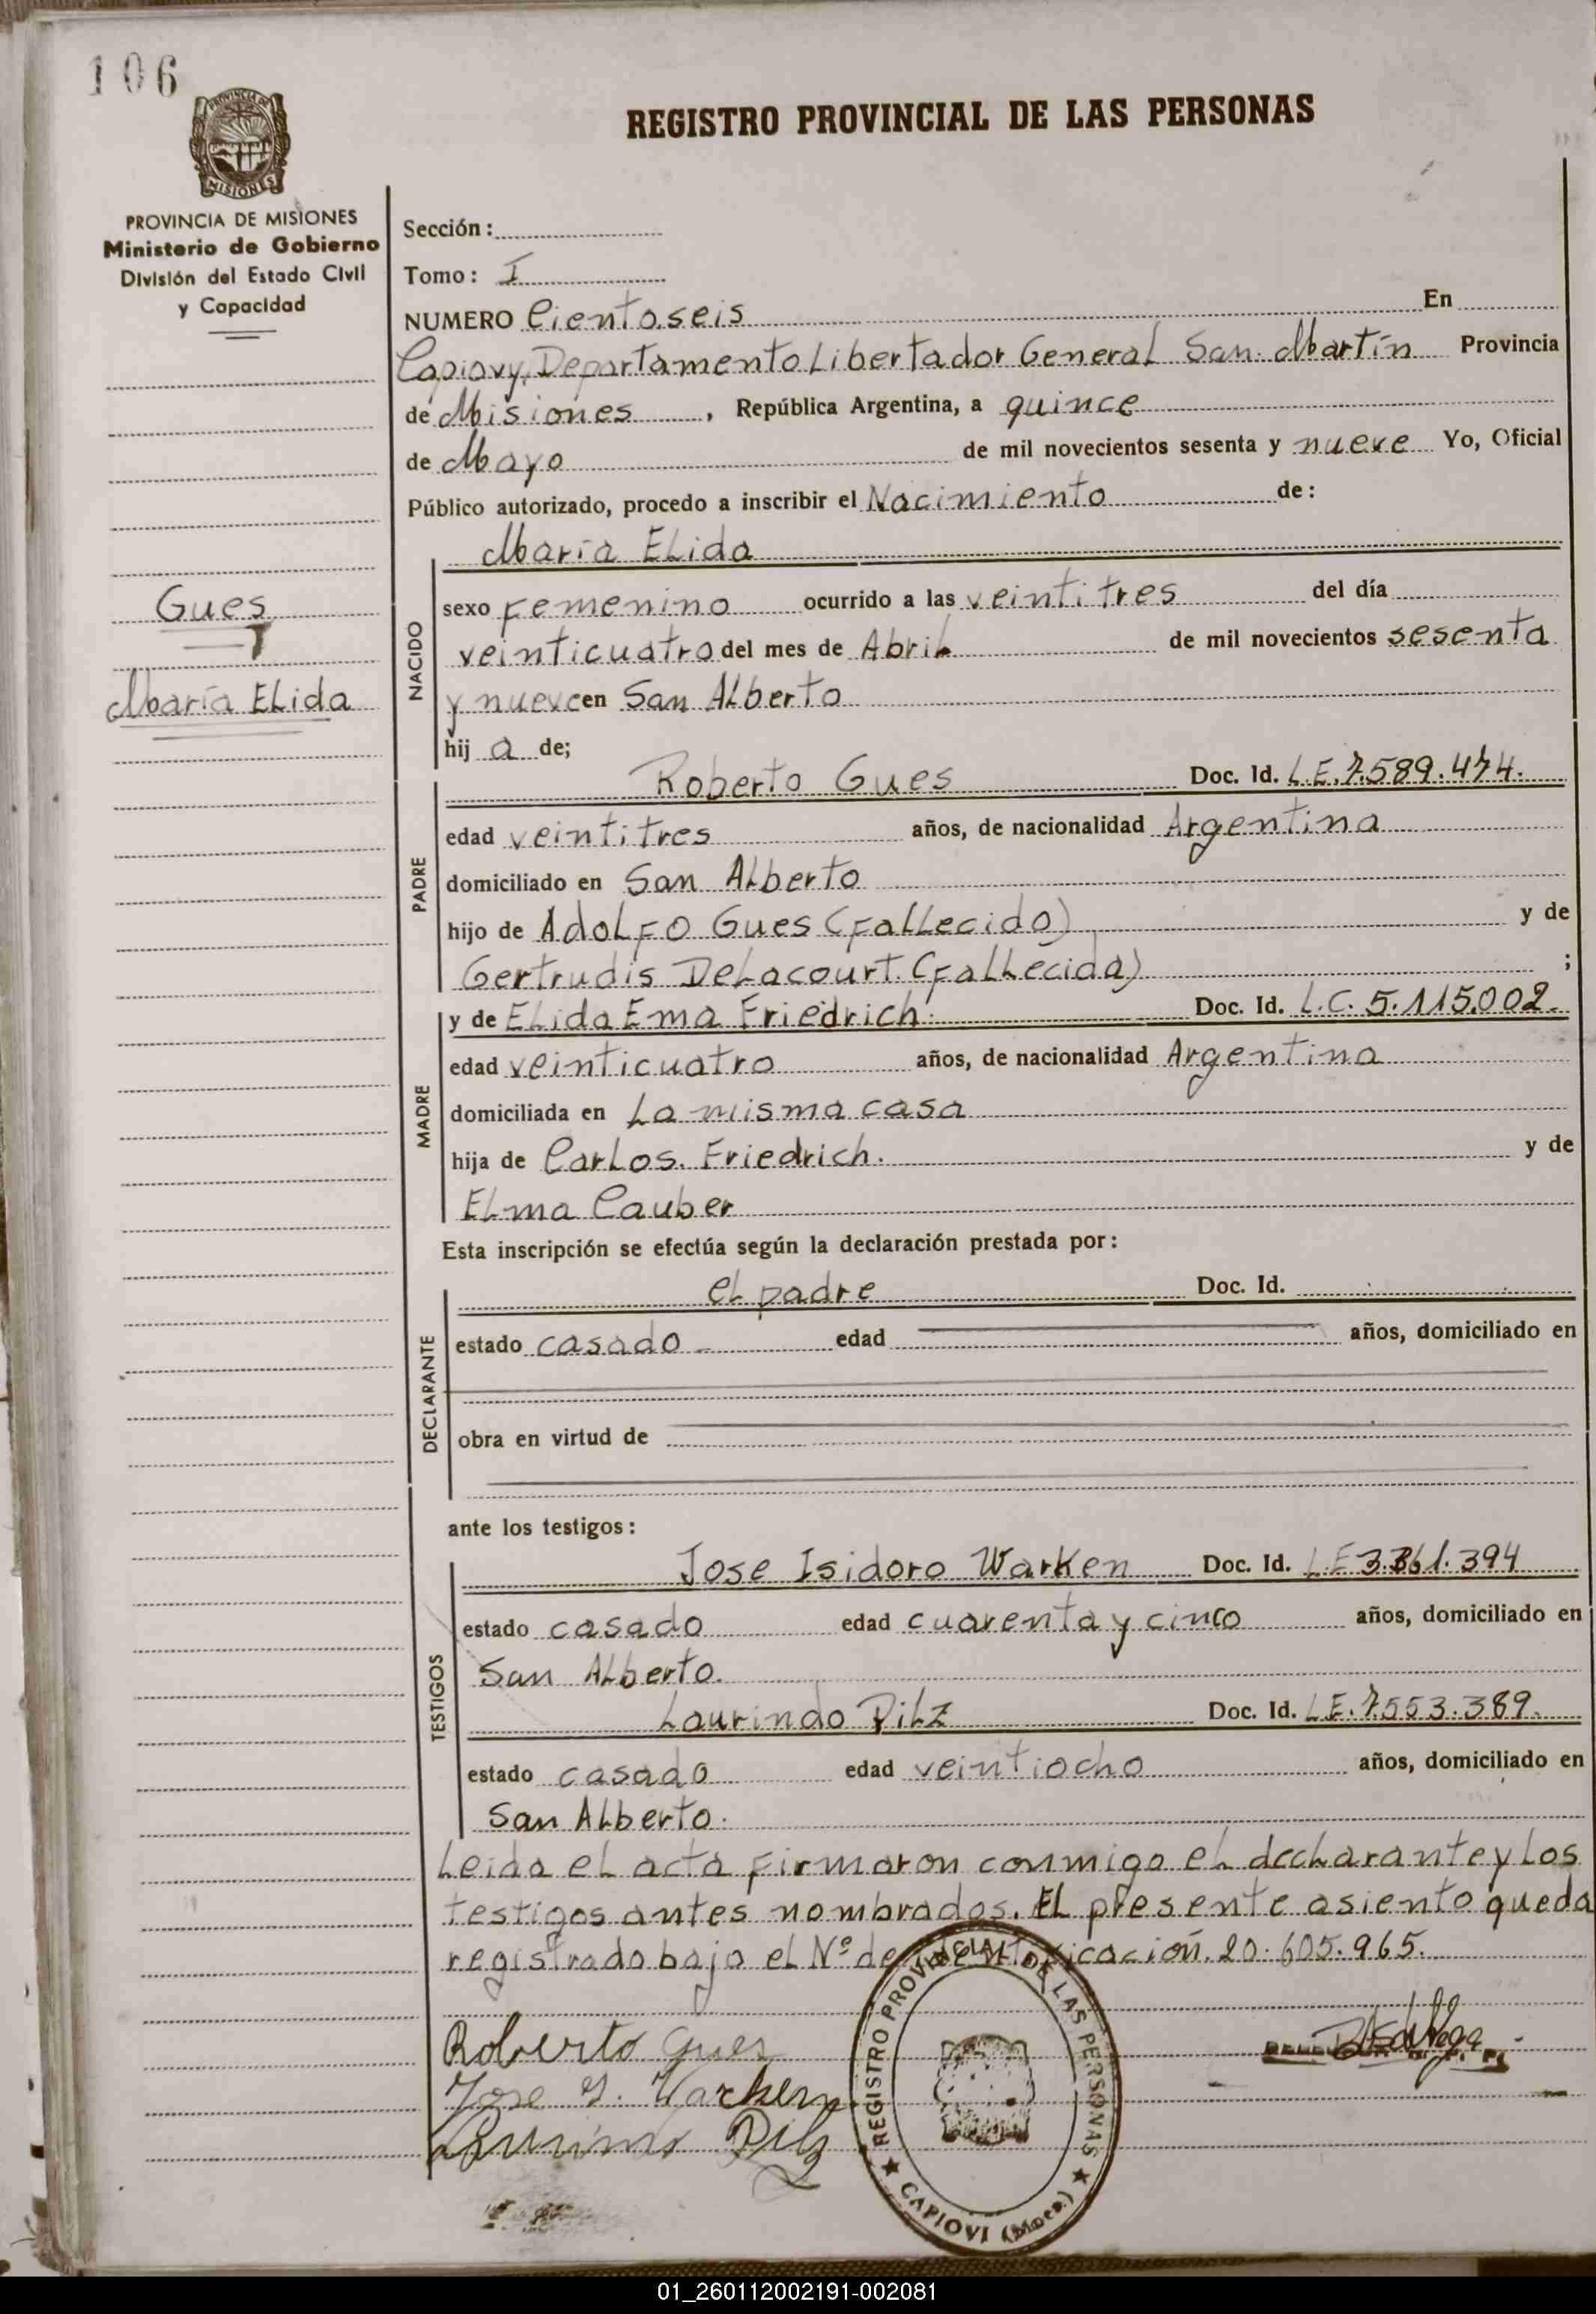 106
REGISTRO PROVINCIAL DE LAS PERSONAS
PROVINCIA DE MISIONES
Ministerio de Gobierno
División del Estado Civil
y Capacidad
Gues
María Elida
Sección:
Tomo: I
NUMERO Ciento seis En
Capiovy, Departamento Libertador General San Martín Provincia
de Misiones, República Argentina, a quince
de Mayo de mil novecientos sesenta y nueve Yo, Oficial
Público autorizado, procedo a inscribir el Nacimiento de:
María Elida
NACIDO
sexo Femenino ocurrido a las veintitres del día
veinticuatro del mes de Abril de mil novecientos sesenta
y nueve en San Alberto
hij a de;
Roberto Gues Doc. Id. L.E. 7.589.474.
PADRE
edad veintitres años, de nacionalidad Argentina
domiciliado en San Alberto
hijo de Adolfo Gues (Fallecido) y de
Gertrudis Delacourt. (Fallecida) ;
MADRE
y de Elida Ema Friedrich. Doc. Id. L.C. 5.115.002.
edad veinticuatro años, de nacionalidad Argentina
domiciliada en La misma casa
hija de Carlos. Friedrich. y de
Elma Cauber
Esta inscripción se efectúa según la declaración prestada por:
DECLARANTE
el padre Doc. Id.
estado casado edad años, domiciliado en
obra en virtud de
ante los testigos:
TESTIGOS
Jose Isidoro Warken Doc. Id. L.E 3.361.394
estado casado edad cuarenta y cinco años, domiciliado en
San Alberto.
Laurindo Pilz Doc. Id. L.E. 7.553.389.
estado casado edad veintiocho años, domiciliado en
San Alberto.
Leida el acta firmaron conmigo el declarante y los
testigos antes nombrados. El presente asiento queda
registrado bajo el Nº de identificación. 20.605.965.
Roberto Gues
Jose I. Warken
Pilz
REGISTRO PROVINCIAL DE LAS PERSONAS
CAPIOVI (Mnes.)
01_260112002191-002081